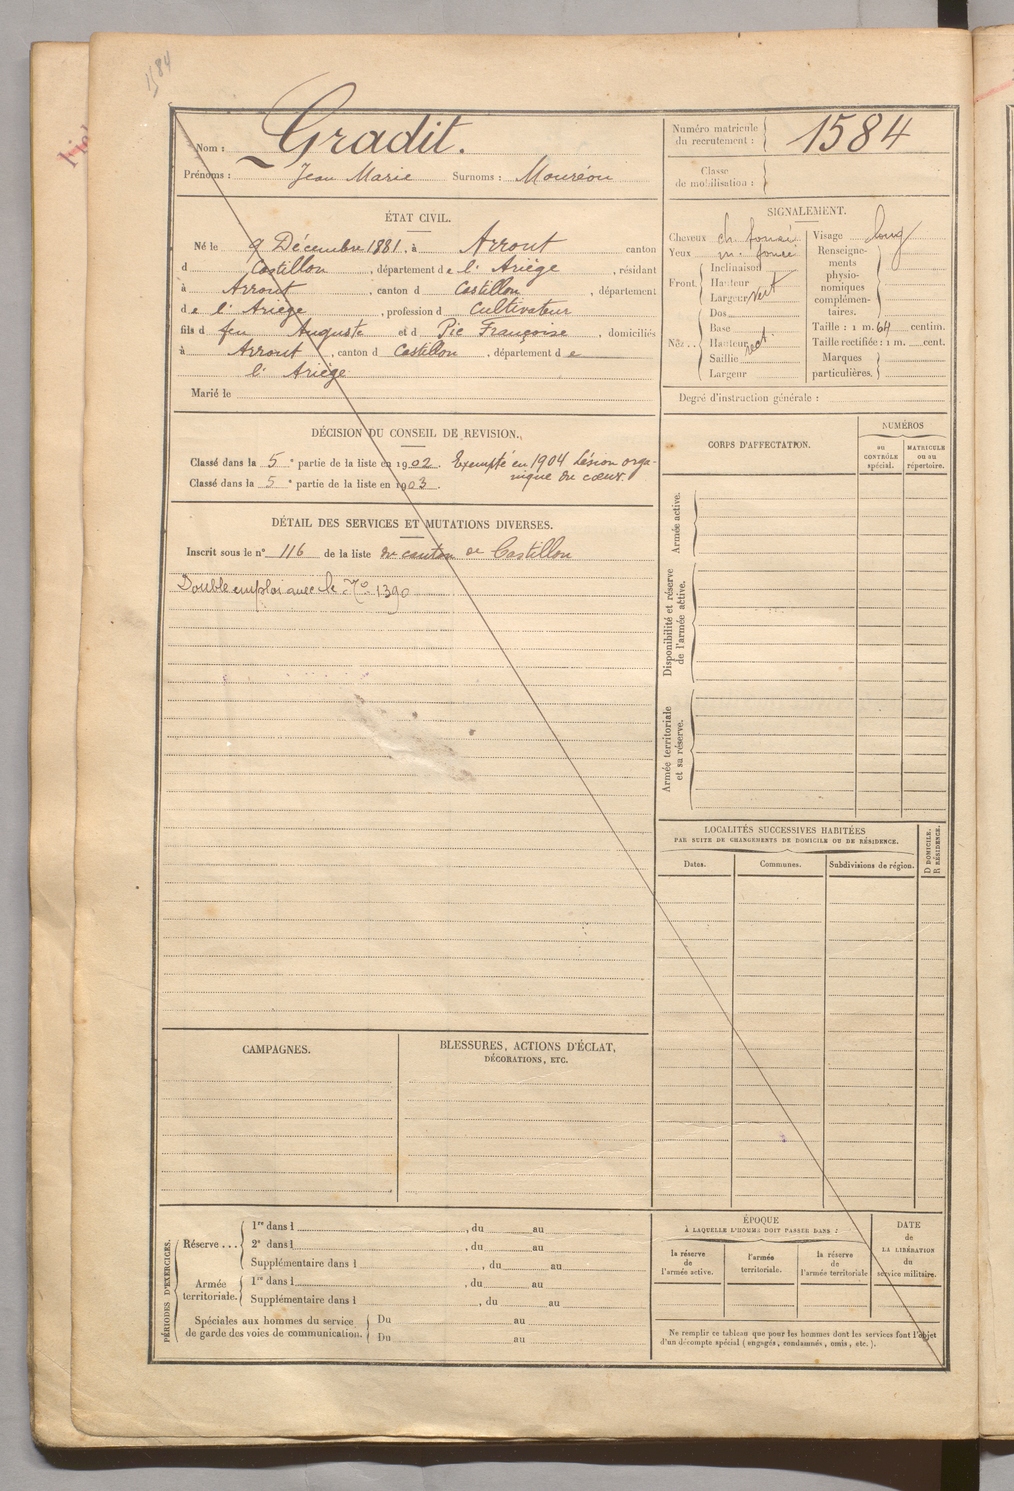 1584
Nom : Gradit.
Prénoms : Jean Marie Surnoms : Mouréou
Numéro matricule du recrutement : 1584
Classe de mobilisation :
ÉTAT CIVIL.
Né le 9 Décembre 1881. à Arrout canton
d Castillon, département de l'Ariège, résidant
à Arrout, canton d Castillon, département
de l'Ariège, profession d cultivateur
fils d feu Auguste et d Pic Françoise, domiciliés
à Arrout, canton d Castillon, département de
l'Ariège
Marié le
SIGNALEMENT.
Cheveux ch. foncé
Yeux m. foncé
Front. Inclinaison
Hauteur
Largeur
Nez.. Dos
Base
Hauteur
Saillie
Largeur
Visage long
Renseignements physionomiques complémentaires.
Taille : 1 m. 64 centim.
Taille rectifiée : 1 m. cent.
Marques particulières.
Degré d'instruction générale :
DÉCISION DU CONSEIL DE REVISION.
Classé dans la 5e partie de la liste en 1902. Exempté en 1904 Lésion orga-
nique du cœur.
Classé dans la 5e partie de la liste en 1903.
DÉTAIL DES SERVICES ET MUTATIONS DIVERSES.
Inscrit sous le n° 116 de la liste du canton de Castillon
Double emploi avec le No 1390
CORPS D'AFFECTATION.
NUMÉROS
au CONTRÔLE spécial.
MATRICULE ou au répertoire.
Armée active.
Disponibilité et réserve de l'armée active.
Armée territoriale et sa réserve.
LOCALITÉS SUCCESSIVES HABITÉES
PAR SUITE DE CHANGEMENTS DE DOMICILE OU DE RÉSIDENCE.
Dates.
Communes.
Subdivisions de région.
D DOMICILE.
R RÉSIDENCE.
CAMPAGNES.
BLESSURES, ACTIONS D'ÉCLAT,
DÉCORATIONS, ETC.
PÉRIODES D'EXERCICES.
Réserve ...
1re dans l, du au
2e dans l, du au
Supplémentaire dans l, du au
Armée territoriale.
1re dans l, du au
Supplémentaire dans l, du au
Spéciales aux hommes du service
de garde des voies de communication.
Du au
Du au
ÉPOQUE
À LAQUELLE L'HOMME DOIT PASSER DANS :
la réserve de l'armée active.
l'armée territoriale.
la réserve de l'armée territoriale
DATE
de
LA LIBÉRATION
du
service militaire.
Ne remplir ce tableau que pour les hommes dont les services font l'objet
d'un décompte spécial (engagés, condamnés, omis, etc.).